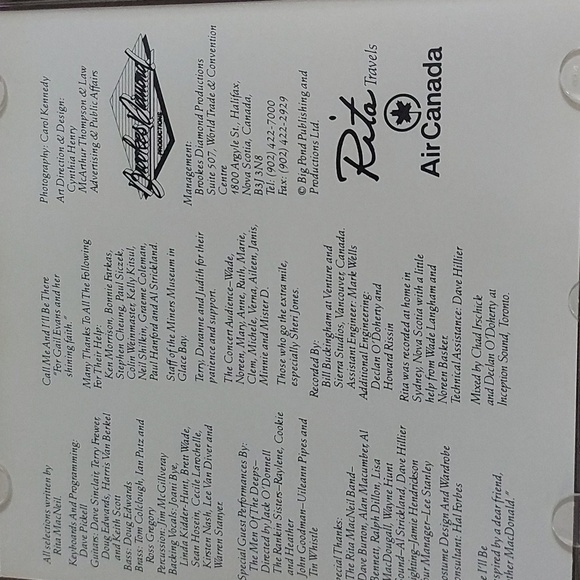 All selections written by
Rita MacNeil.
Keyboards And Programming:
Dave Pickell
Guitars: Dave Sinclair, Terry Frewer,
Doug Edwards, Harris Van Berkel
and Keith Scott
Bass: Doug Edwards
Brass: Tom Colclough, Ian Putz and
Ross Gregory
Percussion: Jim McGillveray
Backing Vocals: Joani Bye,
Linda Kidder-Hunt, Brett Wade,
Ken Hossein, Cecile Larochelle,
Kirsten Nash, Lee Van Diver and
Warren Stanyer
Special Guest Performances By:
The Men Of The Deeps–
Directed by Jack O'Donnell
The Rankin Sisters–Raylene, Cookie
and Heather
John Goodman–Uileann Pipes and
Tin Whistle
Special Thanks:
The Rita MacNeil Band–
Dave Burton, Alan Macumber, Al
Bennett, Ralph Dillon, Lisa
MacDougall, Wayne Hunt
ound–Al Strickland, Dave Hillier
ghting–Jamie Hendrickson
r Manager–Lee Stanley
ostume Design And Wardrobe
onsultant: Hal Forbes
I'll Be
nspired by a dear friend,
ter MacDonald."
Call Me And I'll Be There
"for Gail Evans and her
shining faith."
Many Thanks To All The Following
For Their Help:
Ken Morrison, Bonnie Farkas,
Stephen Cheung, Paul Siczek,
Colin Weinmaster, Kelly Kitsul,
Neil Shilkin, Graeme Coleman,
Paul Hanford and Al Strickland.
Staff of the Miners Museum in
Glace Bay.
Terry, Duranne and Judith for their
patience and support.
The Concert Audience–Wade,
Noreen, Mary, Anne, Ruth, Marie,
Clem, Michie, Verna, Aileen, Janis,
Minnie and Mister D.
Those who go the extra mile,
especially, Sheri Jones.
Recorded By:
Bill Buckingham at Venture and
Sierra Studios, Vancouver, Canada.
Assistant Engineer: Mark Wells
Additional Engineering:
Declan O'Doherty and
Howard Rissin
Rita was recorded at home in
Sydney, Nova Scotia with a little
help from Wade Langham and
Noreen Baskett
Technical Assistance: Dave Hillier
Mixed by Chad Irschick
and Declan O'Doherty at
Inception Sound, Toronto.
Photography: Carol Kennedy
Art Direction & Design:
Cynthia Henry
McArthur Thompson & Law
Advertising & Public Affairs
Brookes Diamond
PRODUCTIONS
Management:
Brookes Diamond Productions
Suite 507, World Trade & Convention
Centre
1800 Argyle St, Halifax,
Nova Scotia, Canada,
B3J 3N8
Tel: (902) 422-7000
Fax: (902) 422-2929
© Big Pond Publishing and
Productions Ltd.
Rita Travels
Air Canada